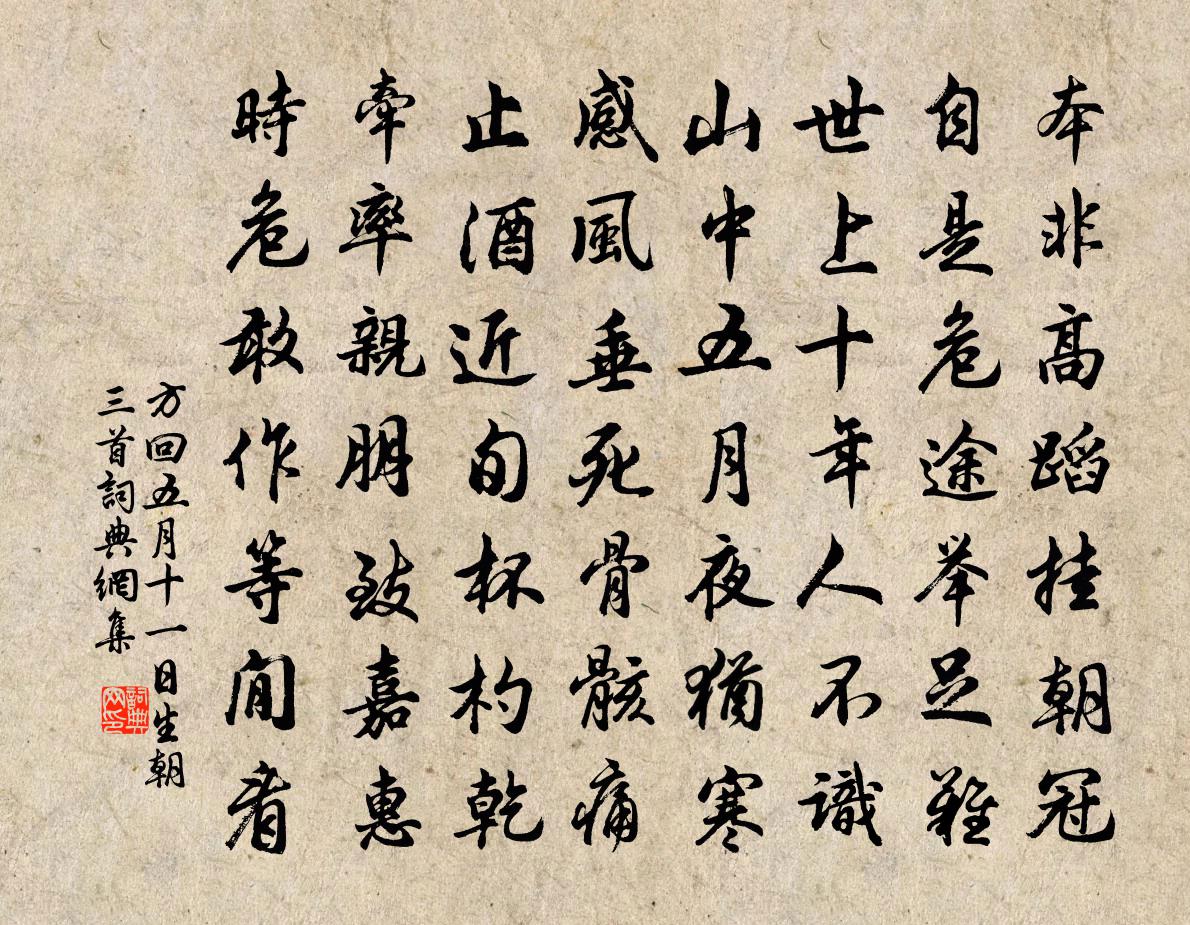 本非高蹈挂朝冠
自是危途举足难
世上十年人不識
山中五月夜猶寒
感風垂死骨骸痛
止酒近旬杯杓乾
牽率親朋致嘉惠
時危敢作等閒看
方回五月十一日生朝
三首詞典網集
詞典
网印